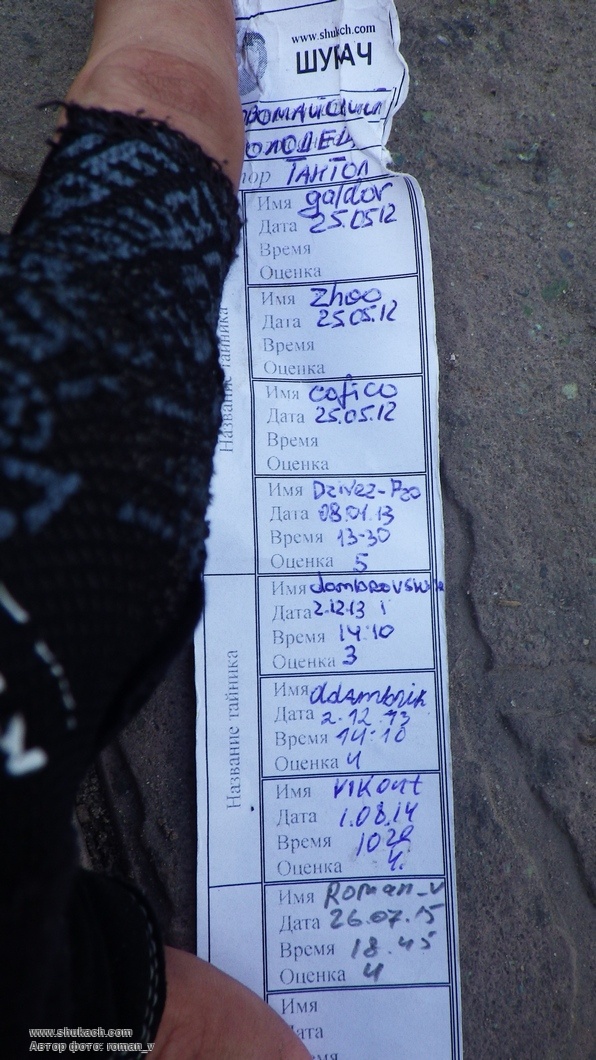 www.shukach.com
ШУКАЧ
ВОМАЙСКИЙ
ОЛОДЕЦ
тор ТАНТОЛ
Имя galdor
Дата 25.05.12
Время
Оценка
Имя Zhoo
Дата 25.05.12
Время
Оценка
Имя cofico
Дата 25.05.12
Время
Оценка
Название тайника
Имя Dzivez-Pzo
Дата 08.01.13
Время 13-30
Оценка 5
Имя
Дата 2.12.13
Время 14:10
Оценка 3
Имя ddambrik
Дата 2.12.13
Время 14:10
Оценка 4
Название тайника
Имя VIKont
Дата 1.08.14
Время
Оценка 4.
Имя Roman_v
Дата 26.07.15
Время 18.45
Оценка 4
Имя
Дата
www.shukach.com
Автор фото: roman_v